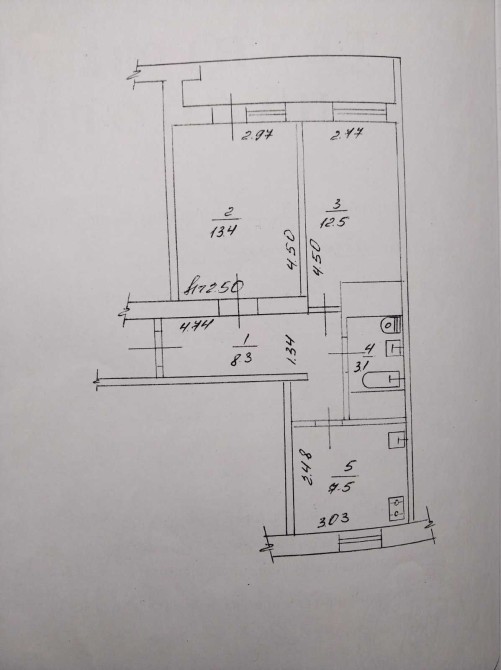 2.97
2.77
2
13.4
3
12.5
4.50
4.50
h=2.50
4.74
1
8.3
1.34
4
3.1
2.48
5
7.5
3.03